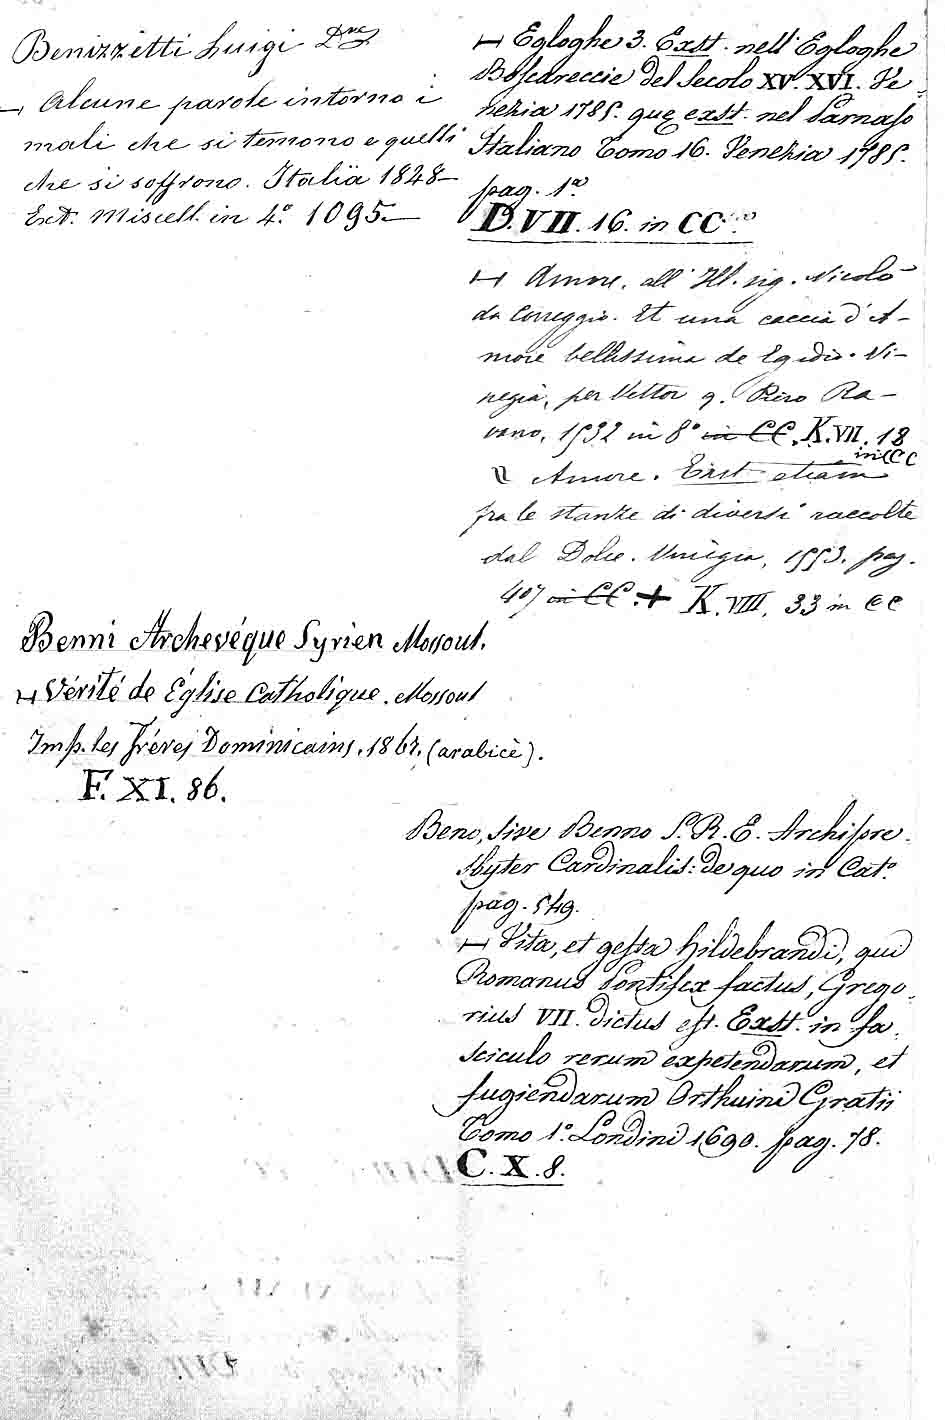 Benizzetti Luigi Dre
⊢ Alcune parole intorno i
mali che si temono e quelli
che si soffrono. Italia 1848—
Ext. Miscell. in 4.° 1095.—
Benni Archevéque Syrien Mossoul.
⊢ Vérité de Église Catholique. Mossoul
Imp. les Fréres Dominicains. 1867. (arabicè).
F. XI. 86.
⊢ Egloghe 3. Exst. nell' Egloghe
Boscareccie del Secolo XV. XVI. Ve-
nezia 1785. quę exst. nel Parnaso
Italiano Tomo 16. Venezia 1785.
pag. 1.a
D. VII. 16. in CC.
⊢ Amore. all' Ill. sig. Nicolò
da Correggio. Et una caccia d'A-
more bellissima de Egidio. Vi-
negia, per Vettor q. Piero Ra-
vano, 1532 in 8° in CC. K. VII. 18
in CC
Amore. Exst etiam
fra le stanze di diversi raccolte
dal Dolce. Vinegia, 1553. pag.
407 in CC. + K. VIII. 33 in CC
Beno, sive Benno S. R. E. Archipre-
sbyter Cardinalis: de quo in Cat.°
pag. 549.
⊢ Vita, et gesta Hildebrandi, qui
Romanus Pontifex factus, Grego-
rius VII. dictus est. Exst. in fa-
sciculo rerum expetendarum, et
fugiendarum Orthuini Gratii
Tomo 1.° Londini 1690. pag. 78.
C. X. 8.